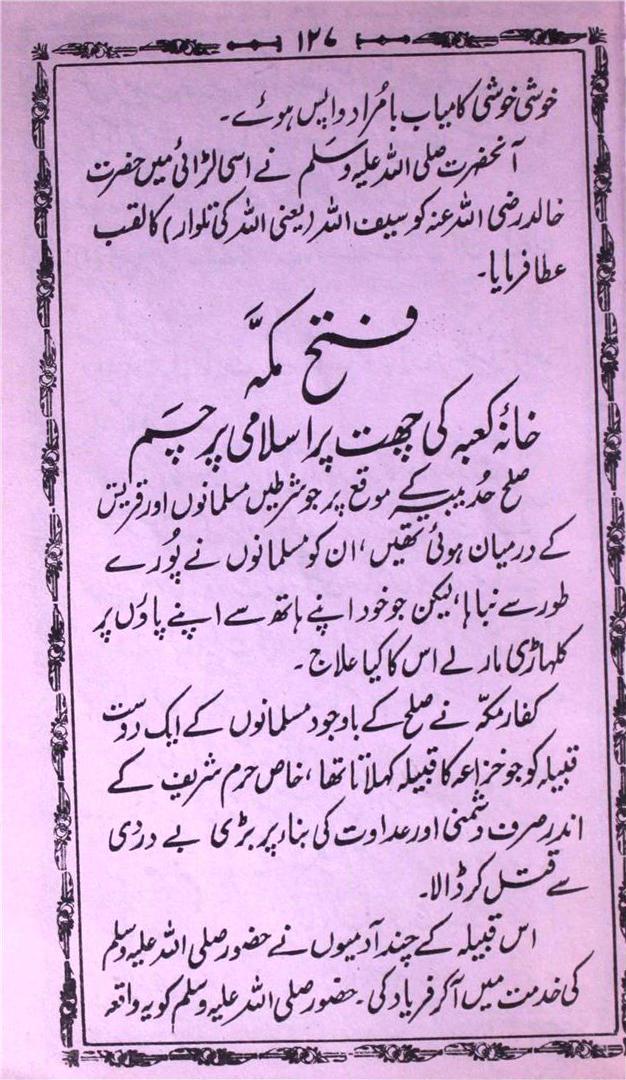 ۱۲۷
خوشی خوشی کامیاب بامُراد واپس ہوئے۔
آنحضرت صلی اللہ علیہ وسلم نے اسی لڑائی میں حضرت
خالد رضی اللہ عنہ کو سیف اللہ (یعنی اللہ کی تلوار) کا لقب
عطا فرمایا۔
فتح مکہّ
خانۂ کعبہ کی چھت پر اسلامی پرچم
صلح حُدیبیہ کے موقع پر جو شرطیں مسلمانوں اور قریش
کے درمیان ہوئی تھیں، ان کو مسلمانوں نے پُورے
طور سے نباہا، لیکن جو خود اپنے ہاتھ سے اپنے پاؤں پر
کلہاڑی مار لے اس کا کیا علاج۔
کفار مکہّ نے صلح کے باوجود مسلمانوں کے ایک دوست
قبیلہ کو جو خزاعہ کا قبیلہ کہلاتا تھا، خاص حرم شریف کے
اندر صرف دشمنی اور عداوت کی بناء پر بڑی بے دردی
سے قتل کر ڈالا۔
اس قبیلہ کے چند آدمیوں نے حضور صلی اللہ علیہ وسلم
کی خدمت میں آکر فریاد کی۔ حضور صلی اللہ علیہ وسلم کو یہ واقعہ